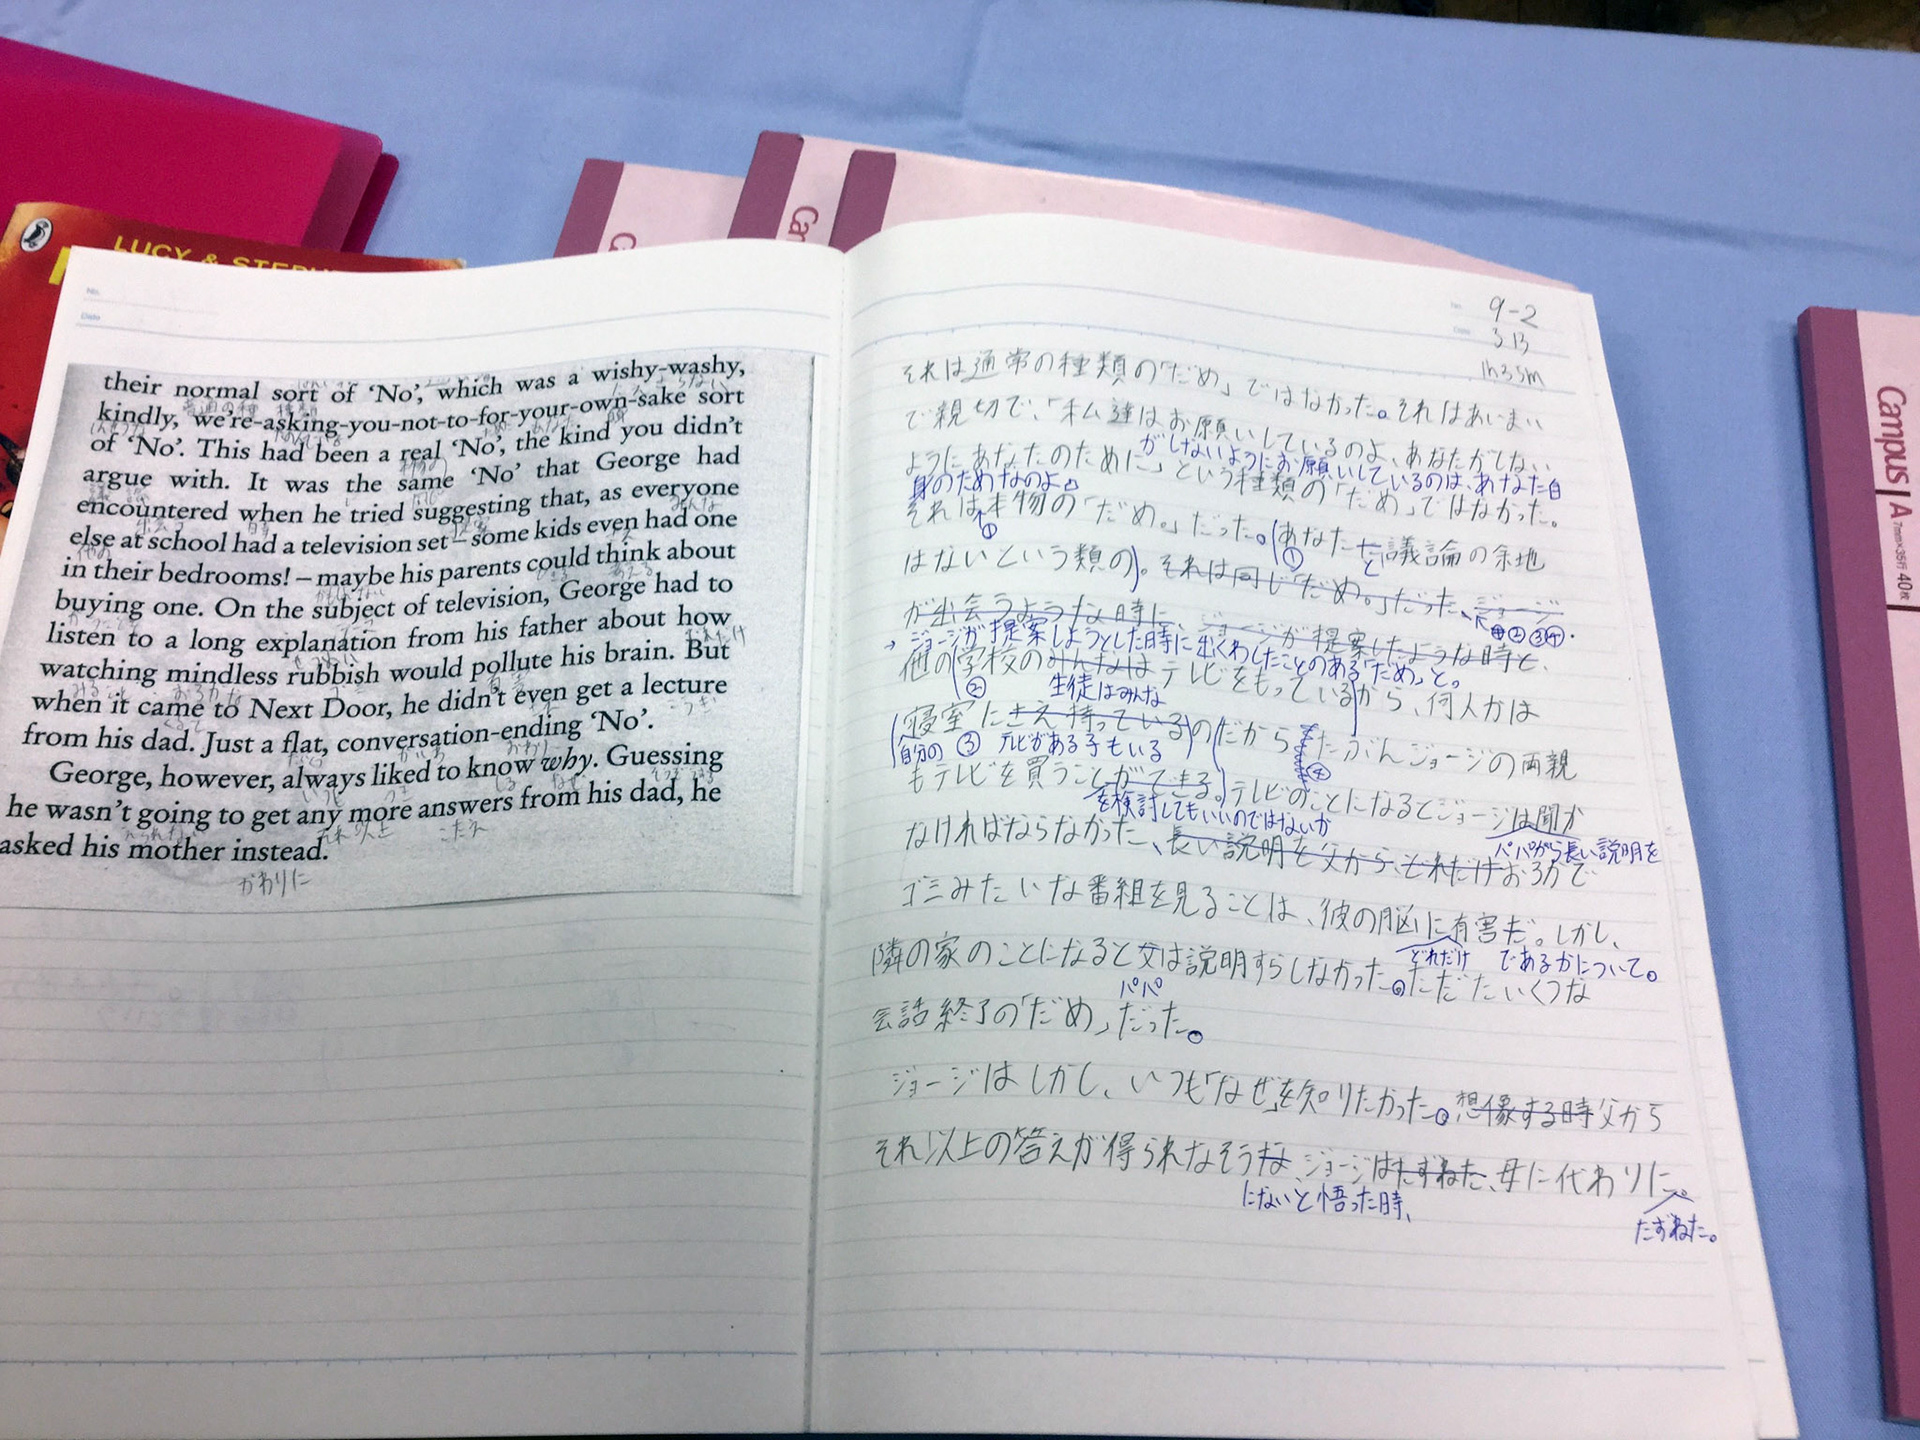 LUCY & STEPH
No.
Date
their normal sort of ‘No’, which was a wishy-washy,
kindly, we’re-asking-you-not-to-for-your-own-sake sort
of ‘No’. This had been a real ‘No’, the kind you didn’t
argue with. It was the same ‘No’ that George had
encountered when he tried suggesting that, as everyone
else at school had a television set – some kids even had one
in their bedrooms! – maybe his parents could think about
buying one. On the subject of television, George had to
listen to a long explanation from his father about how
watching mindless rubbish would pollute his brain. But
when it came to Next Door, he didn’t even get a lecture
from his dad. Just a flat, conversation-ending ‘No’.
George, however, always liked to know why. Guessing
he wasn’t going to get any more answers from his dad, he
asked his mother instead.
それ以上 こたえ
かわりに
No. 9-2
Date 3.13
1h35m
それは通常の種類の「だめ」ではなかった。それはあいまい
で親切で、「私達はお願いしているのよ、あなたがしない
がしないようにお願いしているのは、あなた自
ようにあなたのために」という種類の「だめ」ではなかった。
身のためなのよ。
それは本物の「だめ。」だった。(あなたと議論の余地
① ①
はないという類の)。それは同じ「だめ。」だった、ジョージ
②③④
が出会うような時に、ジョージが提案したような時と、
→ジョージが提案しようとした時に出くわしたことのある「だめ」と。
他の学校のみんなはテレビをもっているから、何人かは
② 生徒はみんな
寝室にさえ持っている)の(だから たぶんジョージの両親
自分の ③ テレビがある子もいる ④
もテレビを買うことができる。テレビのことになるとジョージは聞か
を検討してもいいのではないか
なければならなかった、長い説明を父から、それだけおろかで
パパから長い説明を
ゴミみたいな番組を見ることは、彼の脳に有害だ。しかし、
どれだけ であるかについて。
隣の家のことになると父は説明すらしなかった。ただたいくつな
パパ
会話終了の「だめ」だった。
ジョージはしかし、いつも「なぜ」を知りたかった。想像する時父から
それ以上の答えが得られなそうな、ジョージはたずねた、母に代わりに。
にないと悟った時、
たずねた。
Campus A 7mm×35行 40枚